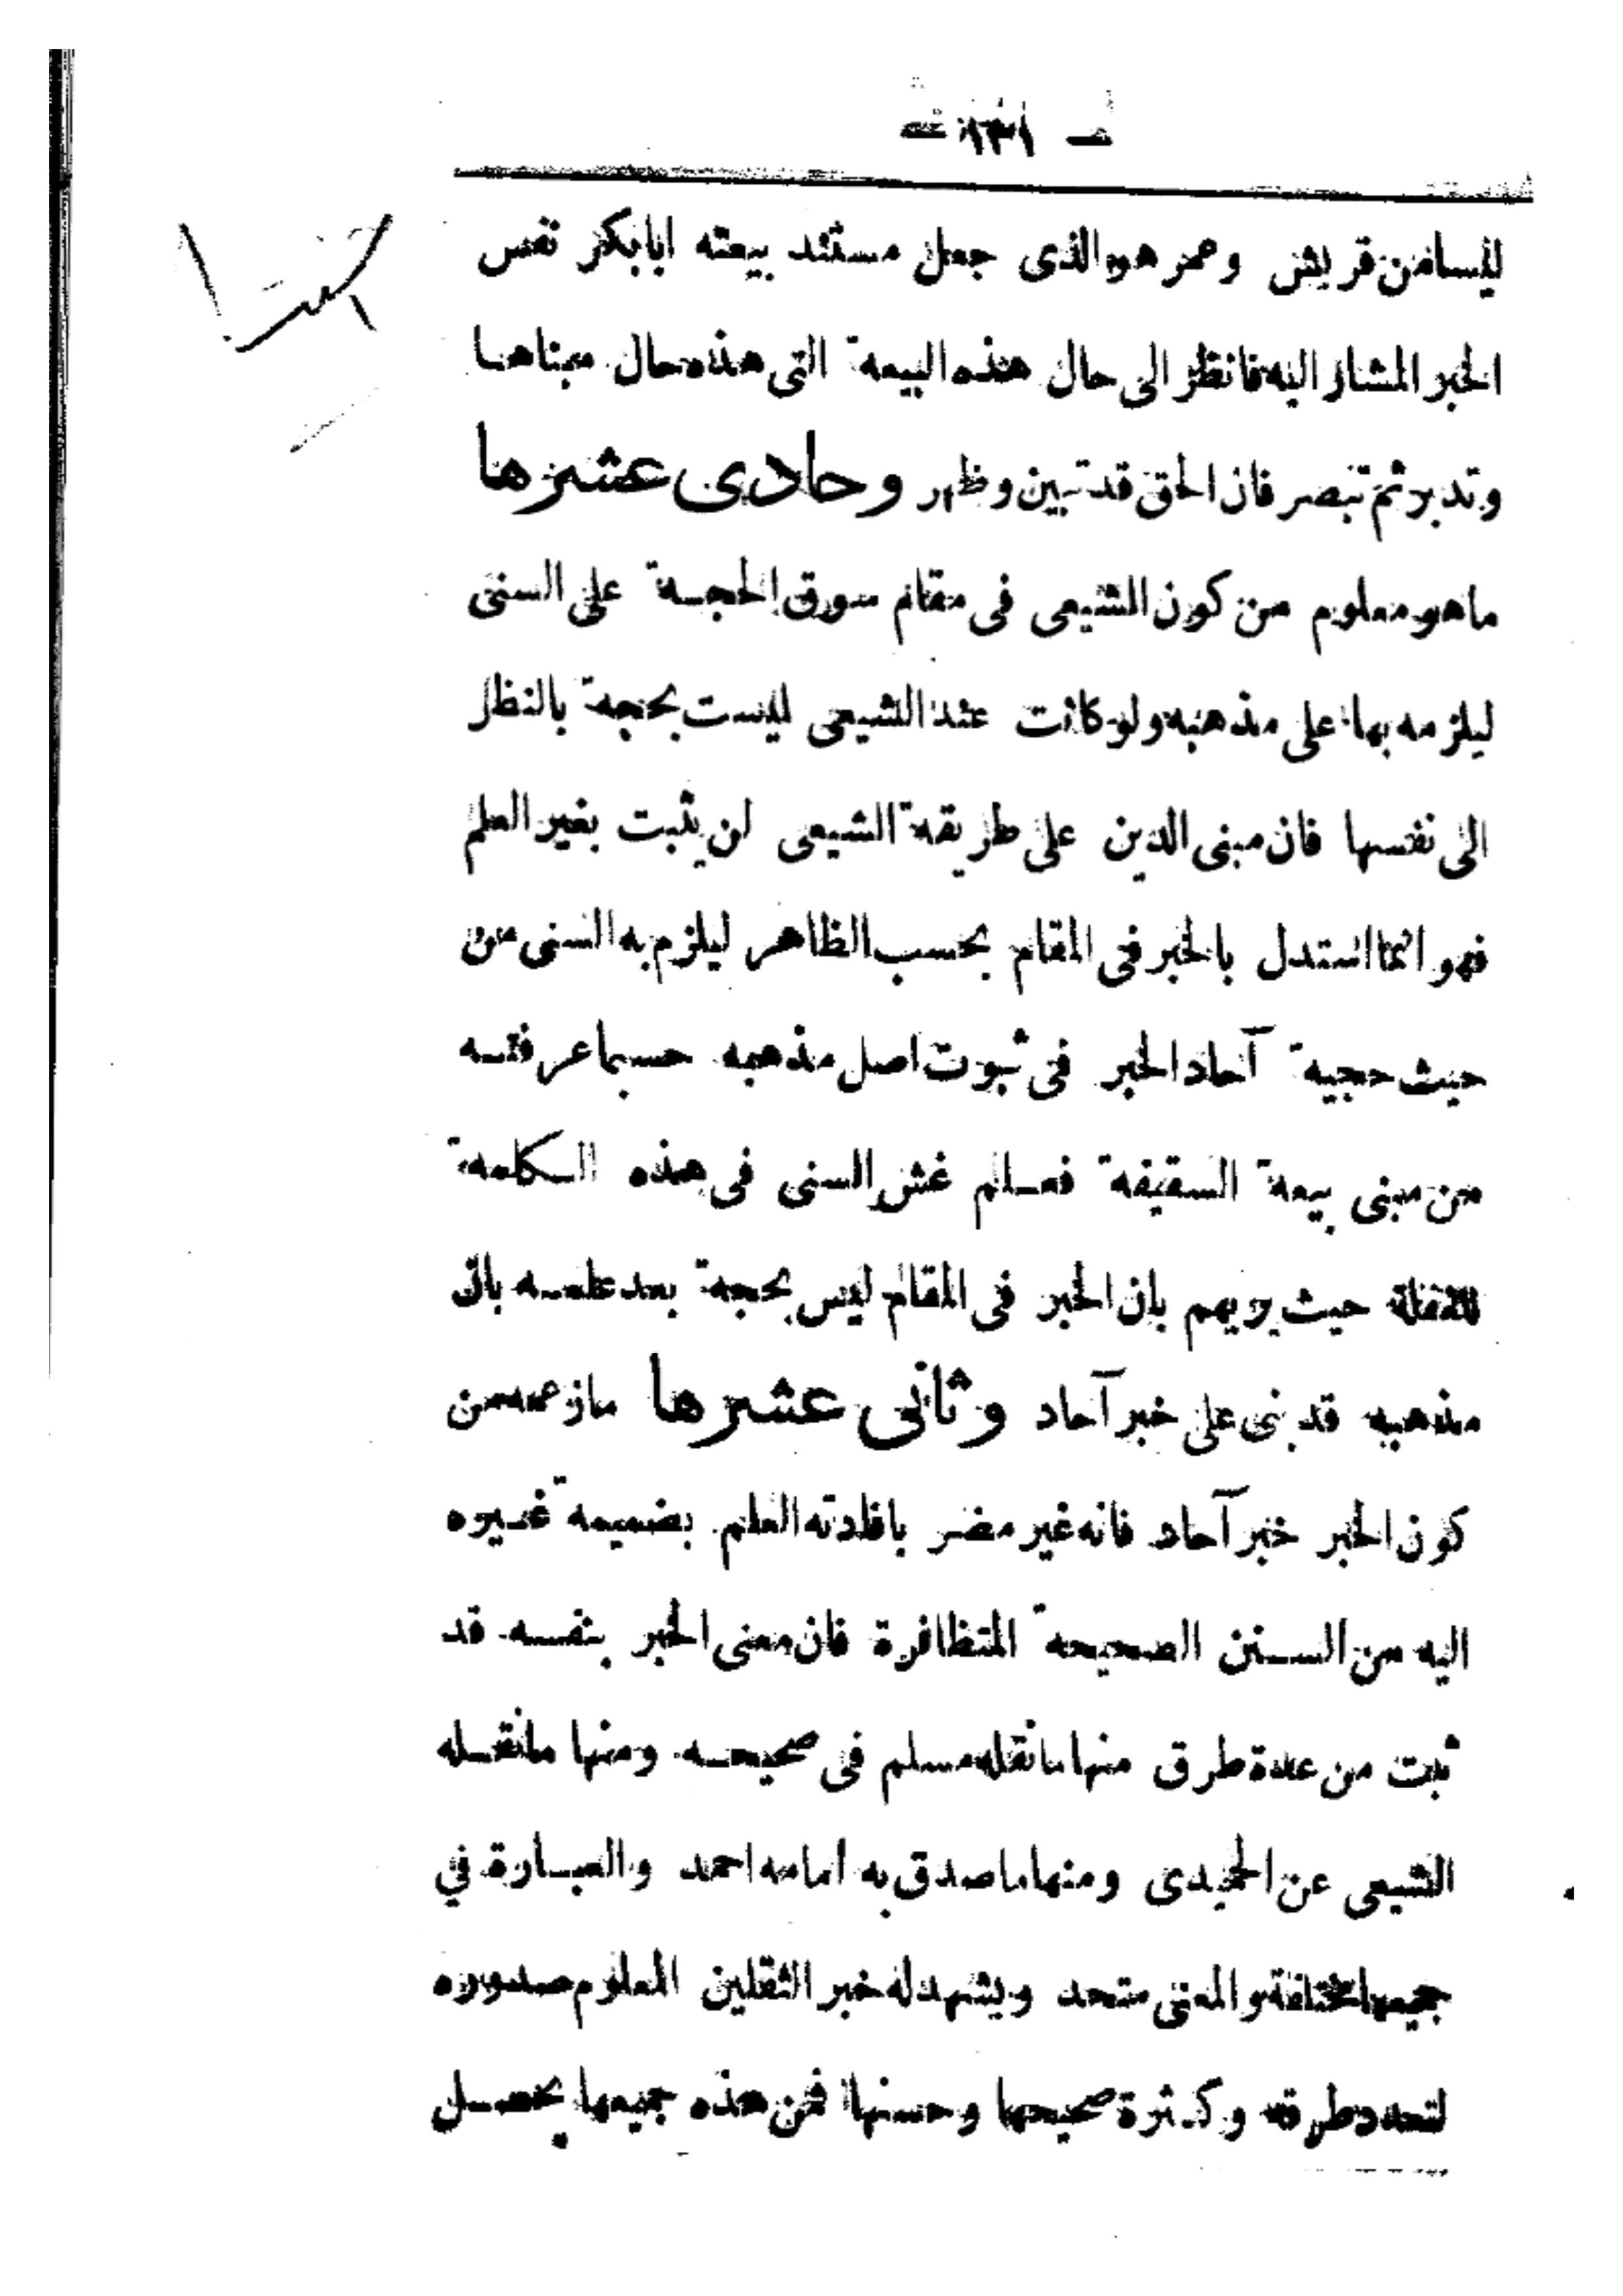 — ١٣١ —
ليسا من قريش وعمر هو الذى جعل مستند بيعته ابابكر نفس
الخبر المشار اليه فانظر الى حال هذه البيعة التى هذه حال مبناها
وتدبر ثم تبصر فان الحق قد تبين وظهر وحادى عشرها
ما هو معلوم من كون الشيعى فى مقام سوق الحجة على السنى
ليلزمه بها على مذهبه ولو كانت عند الشيعى ليست بحجة بالنظر
الى نفسها فان مبنى الدين على طريقة الشيعى لن يثبت بغير العلم
فهو انما استدل بالخبر فى المقام بحسب الظاهر ليلزم به السنى من
حيث حجية آحاد الخبر فى ثبوت اصل مذهبه حسبما عرفتـه
من مبنى بيعة السقيفة فعـلم غش السنى فى هذه الـكلمة
للغفلة حيث يريهم بان الخبر فى المقام ليس بحجة بعد علمـه بان
مذهبه قد بنى على خبر آحاد وثانى عشرها ما زعمه من
كون الخبر خبر آحاد فانه غير مضر بافادته العلم بضميمة غـيره
اليه من السـنن الصحيحة المتظافرة فان معنى الخبر بنفسـه قد
ثبت من عدة طرق منها ما نقله مسلم فى صحيحـه ومنها ما نقـله
الشيعى عن الحميدى ومنها ما صدق به امامه احمد والعبـارة في
جميعها مختلفة والمعنى متحد ويشهد له خبر الثقلين المعلوم صدوره
لتعدد طرقه وكـثرة صحيحها وحسنها فمن هذه جميعها يحصـل